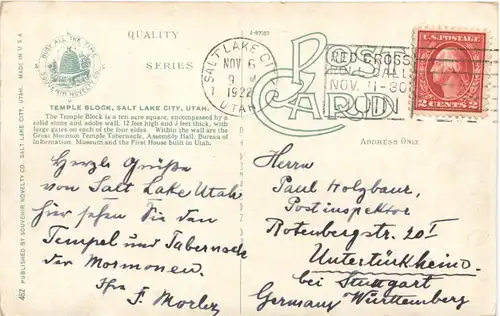 BUSY ALL THE TIME
SOUVENIR NOVELTY CO.
QUALITY
SERIES
A-87087
POST
CARD
SALT LAKE CITY
NOV 6
9 M
1922
UTAH
RED CROSS
ROLL CALL
NOV. 11-30
JOIN
U.S. POSTAGE
2 CENTS 2
TEMPLE BLOCK, SALT LAKE CITY, UTAH.
The Temple Block is a ten acre square, encompassed by a
solid stone and adobe wall, 12 feet high and 3 feet thick, with
large gates on each of the four sides. Within the wall are the
Great Mormon Temple Tabernacle, Assembly Hall, Bureau of
Information, Museum and the First House built in Utah.
ADDRESS ONLY
Herzle Grüße
von Salt Lake Utah
hier sehen Sie den
Tempel und Tabernack
der Mormonen.
Ihr F. Morlez
Herrn
Paul Holzbaur,
Postinspektor
Rotenbergstr. 20 I
Untertürkheim
bei Stuttgart
Germany Württemberg
462 PUBLISHED BY SOUVENIR NOVELTY CO. SALT LAKE CITY, UTAH. MADE IN U S A